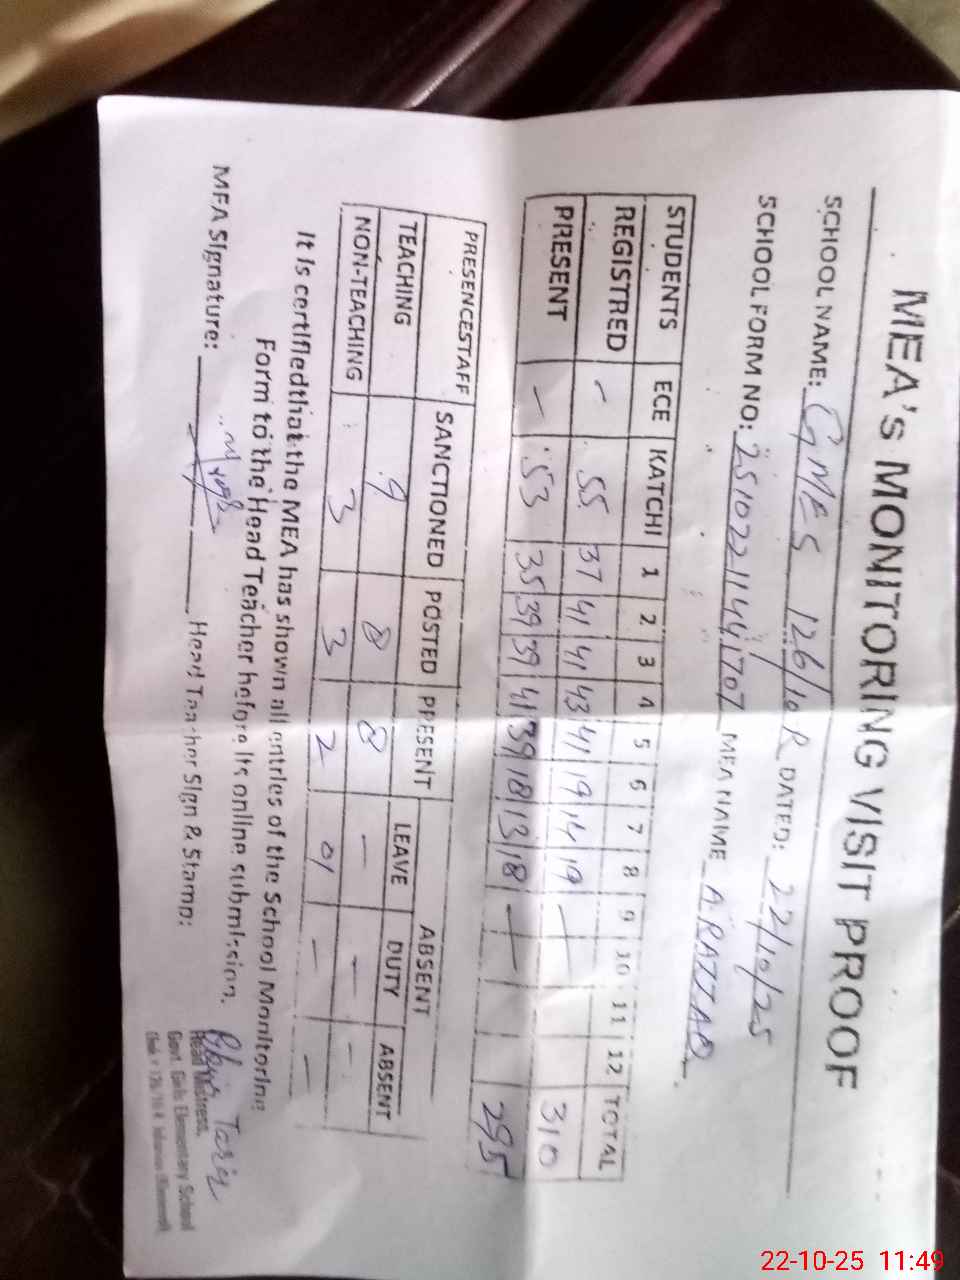 MEA's MONITORING VISIT PROOF
SCHOOL NAME: GMES 126/10R DATED: 22/10/25
SCHOOL FORM NO: 25102211441707 MEA NAME A.RAZZAQ.
STUDENTS ECE KATCHI 1 2 3 4 5 6 7 8 9 10 11 12 TOTAL
REGISTRED - 55 37 41 41 43 41 19 14 19 — 310
PRESENT — 53 35 39 39 41 39 18 13 18 — 295
PRESENCESTAFF SANCTIONED POSTED PRESENT ABSENT
LEAVE DUTY ABSENT
TEACHING 9 8 8 — — —
NON-TEACHING 3 3 2 01 — —
It is certifiedthat the MEA has shown all entries of the School Monitoring
Form to the Head Teacher before its online submission.
MEA Signature: Head Teacher Sign & Stamp:
Tariq
Head Mistress,
Govt. Girls Elementary School
22-10-25 11:49